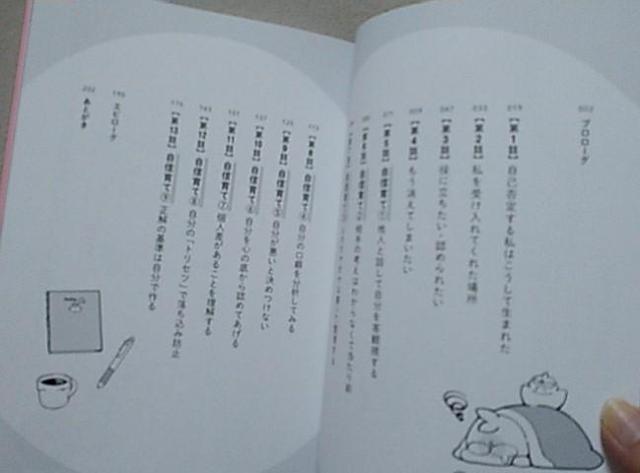 プロローグ
【第1話】自己否定する私はこうして生まれた
【第2話】私を受け入れてくれた場所
【第3話】役に立ちたい・認められたい
【第4話】もう消えてしまいたい
【第5話】自信育て① 他人と話して自分を客観視する
【第6話】自信育て② 相手の考えはわからなくて当たり前
【第8話】自信育て④ 自分の口癖を分析してみる
【第9話】自信育て⑤ 自分が悪いと決めつけない
【第10話】自信育て⑥ 自分を心の底から認めてあげる
【第11話】自信育て⑦ 個人差があることを理解する
【第12話】自信育て⑧ 自分の「トリセツ」で落ち込み防止
【第13話】自信育て⑨ 正解の基準は自分で作る
エピローグ
あとがき